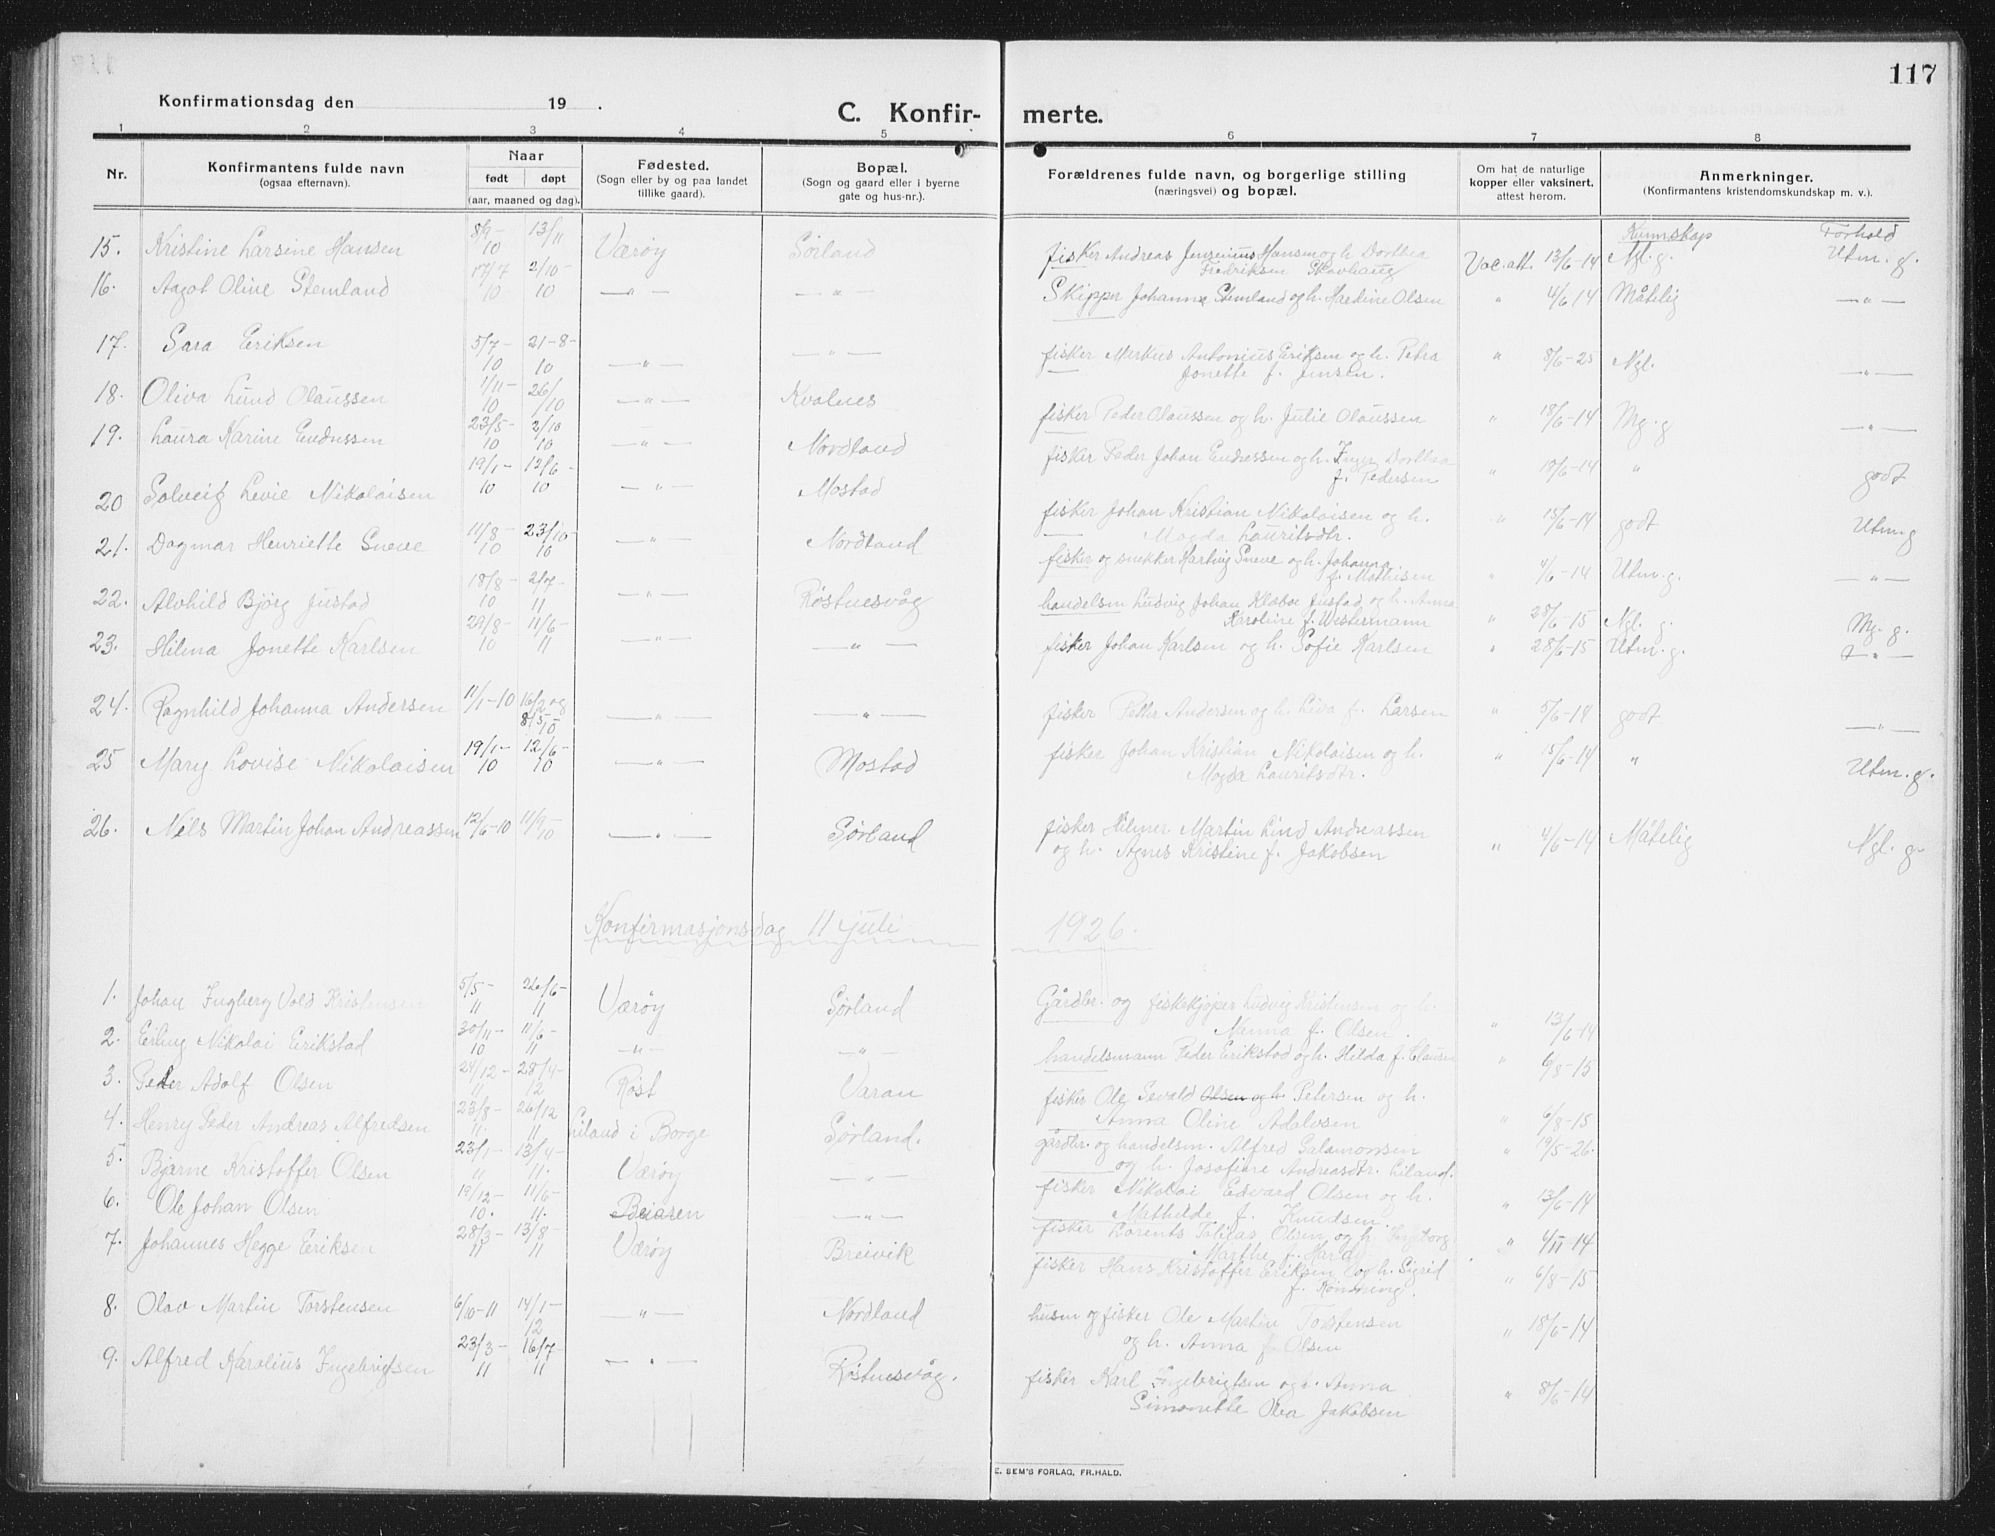 117
Konfirmationsdag den 19 .
C. Konfir- merte.
1 2 3 4 5 6 7 8
Nr.
Konfirmantens fulde navn
(ogsaa efternavn).
Naar
født døpt
(aar, maaned og dag).
Fødested.
(Sogn eller by og paa landet
tillike gaard).
Bopæl.
(Sogn og gaard eller i byerne
gate og hus-nr.).
Forældrenes fulde navn, og borgerlige stilling
(næringsvei) og bopæl.
Om hat de naturlige
kopper eller vaksinert.
attest herom.
Anmerkninger.
(Konfirmantens kristendomskundskap m. v.).
Kunnskap Forhold
15. Kristine Larsine Hansen 8/9-10 13/11 Værøy Sørland fisker Andreas Jensenius Hansen og h. Dorthea Vac. att. 13/6-14 Ngl. g. Utm. g.
Fredriksen Skavhaug
16. Aagot Oline Stemland 17/7 10 2/10-10 -"- -"- Skipper Johannes Stemland og h. Hardine Olsen " 4/6 14 Måtelig -"-
17. Sara Eriksen 5/7-10 21-8-10 -"- -"- fisker Markus Antonius Eriksen og h. Petra " 8/6-25 Ngl. -"-
Jonette f. Jensen.
18. Oliva Lund Olaussen 1/11-10 26/10 -"- Kvalnes fisker Peder Olaussen og h. Julie Olaussen " 18/6-14 Mg. g -"-
19. Laura Karine Endressen 23/5-10 2/10 10 -"- Nordland fisker Peder Johan Endressen og h. Inger Dorthea " 18/6-14 " godt
f. Pedersen
20 Solveig Levie Nikolaisen 19/1-10 12/6-10 -"- Mostad fisker Johan Kristian Nikolaisen og h. " 15/6-14 godt Utm g
Magda Lauritsdtr.
21. Dagmar Henriette Sneve 11/8-10 23/10-10 -"- Nordland fisker og snekker Hartvig Sneve og h. Johanna " 4/6-14 Utm. g. -"-
f. Mathisen
22. Alvhild Bjørg Justad 18/8-10 2/7-11 -"- Røstnesvåg handelsm Ludvig Johan Klæboe Justad og h. Anna " 28/6-15 Ngl. g. Mg. g.
Karoline f. Westermann
23. Hilma Jonette Karlsen 29/8-10 11/6-11 -"- -"- fisker Johan Karlsen og h. Sofie Karlsen " 28/6-15 Utm. g. -"-
24. Ragnhild Johanna Andersen 11/1-10 16/2 og 8/5-10 -"- -"- fisker Petter Andersen og h. Lida f. Larsen " 5/6-14 godt -"-
25 Mary Lovise Nikolaisen 19/1-10 12/6-10 -"- Mostad fisker Johan Kristian Nikolaisen og h. " 15/6-14 " Utm. g.
Magda Lauritsdtr.
26. Nils Martin Johan Andreassen 12/6-10 11/9-10 -"- Sørland fisker Hilmer Martin Lind Andreassen " 4/6-14 Måtelig Ngl. g.
og h. Agnes Kristine f. Jakobsen
Konfirmasjonsdag 11 juli 1926.
1. Johan Ingberg Vold Kristensen 5/5-11 26/6-11 Værøy Sørland Gårdbr. og fiskekjøper Ludvig Kristensen og h. " 13/6-14
Nanna f. Olsen.
2. Erling Nikolai Erikstad 30/11-10 11/6-11 -"- -"- handelsmann Peder Erikstad og h. Hilda f. Clausen " 6/8-15
3. Peder Adolf Olsen 24/12-11 28/4-12 Røst Varan fisker Ole Sevald Olsen og h. Petersen og h. " 6/8-15
Anna Oline Adolvsen
4. Henry Peder Andreas Alfredsen 23/8-11. 26/12 11 Liland i Borge Sørland. gårdbr. og handelsm. Alfred Salamonsen " 19/5-26.
og h. Josefine Andreasdtr. Liland.
5. Bjarne Kristoffer Olsen 23/1-11 13/4-11. Værøy -"- fisker Nikolai Edvard Olsen og h. " 13/6-14
Mathilde f. Knudsen.
6. Ole Johan Olsen 19/12-10. 11/6-11. Beiaren -"- fisker Lorents Tobias Olsen og h. Ingeborg " 4/11-14
Marthe f. Hardy
7. Johannes Hegge Eriksen 28/3-11 13/8-11 Værøy Breivik fisker Hans Kristoffer Eriksen og h. Sigrid " 6/8-15
f. Rønning.
8. Olav Martin Torstensen 6/10-11 14/1-12 -"- Nordland husm og fisker Ole Martin Torstensen " 18/6-14
og h. Anna f. Olsen
9. Alfred Karolius Ingebrigtsen 23/3-11 16/7-11 -"- Røstnesvåg. fisker Karl Ingebrigtsen og h. Anna " 8/6-14
Simonette Olea Jakobsen
E. SEM'S FORLAG, FR.HALD.